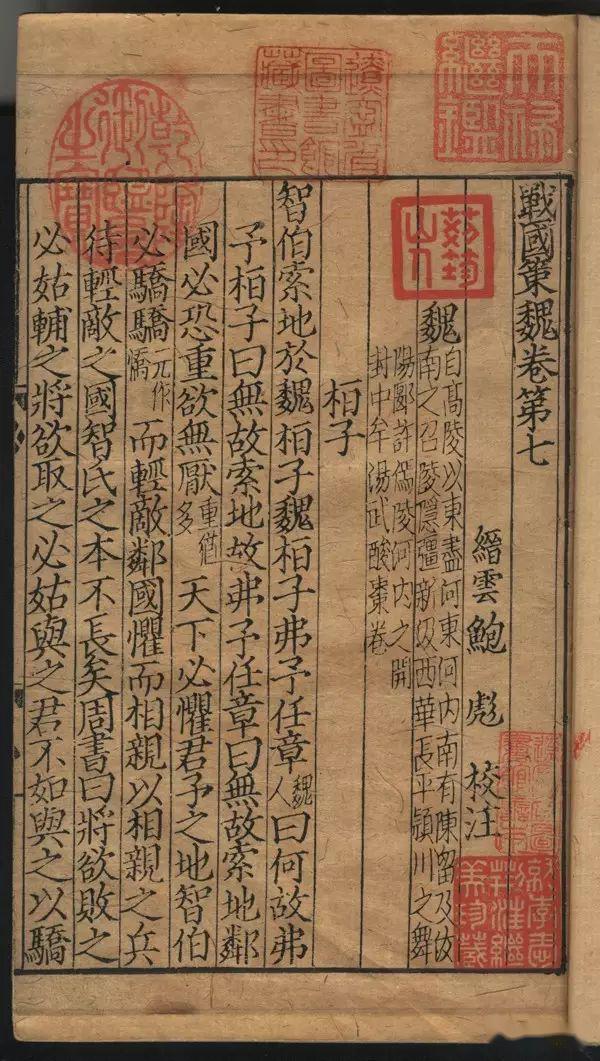 天祿繼鑑
乾隆御覽之寶
戰國策魏卷第七
縉雲鮑 彪 校注
魏 自髙陵以東盡河東河内南有陳留及汝
南之召陵隱彊新汲西華長平潁川之舞
陽郾許傿陵河内之開
封中牟湯武酸棗卷
栢子
智伯索地於魏栢子魏栢子弗予任章魏人曰何故弗
予栢子曰無故索地故弗予任章曰無故索地鄰
國必恐重欲無厭重猶多 天下必懼君予之地智伯
必驕驕元作憍而輕敵鄰國懼而相親以相親之兵
待輕敵之國智氏之本不長矣周書曰將欲敗之
必姑輔之將欲取之必姑與之君不如與之以驕